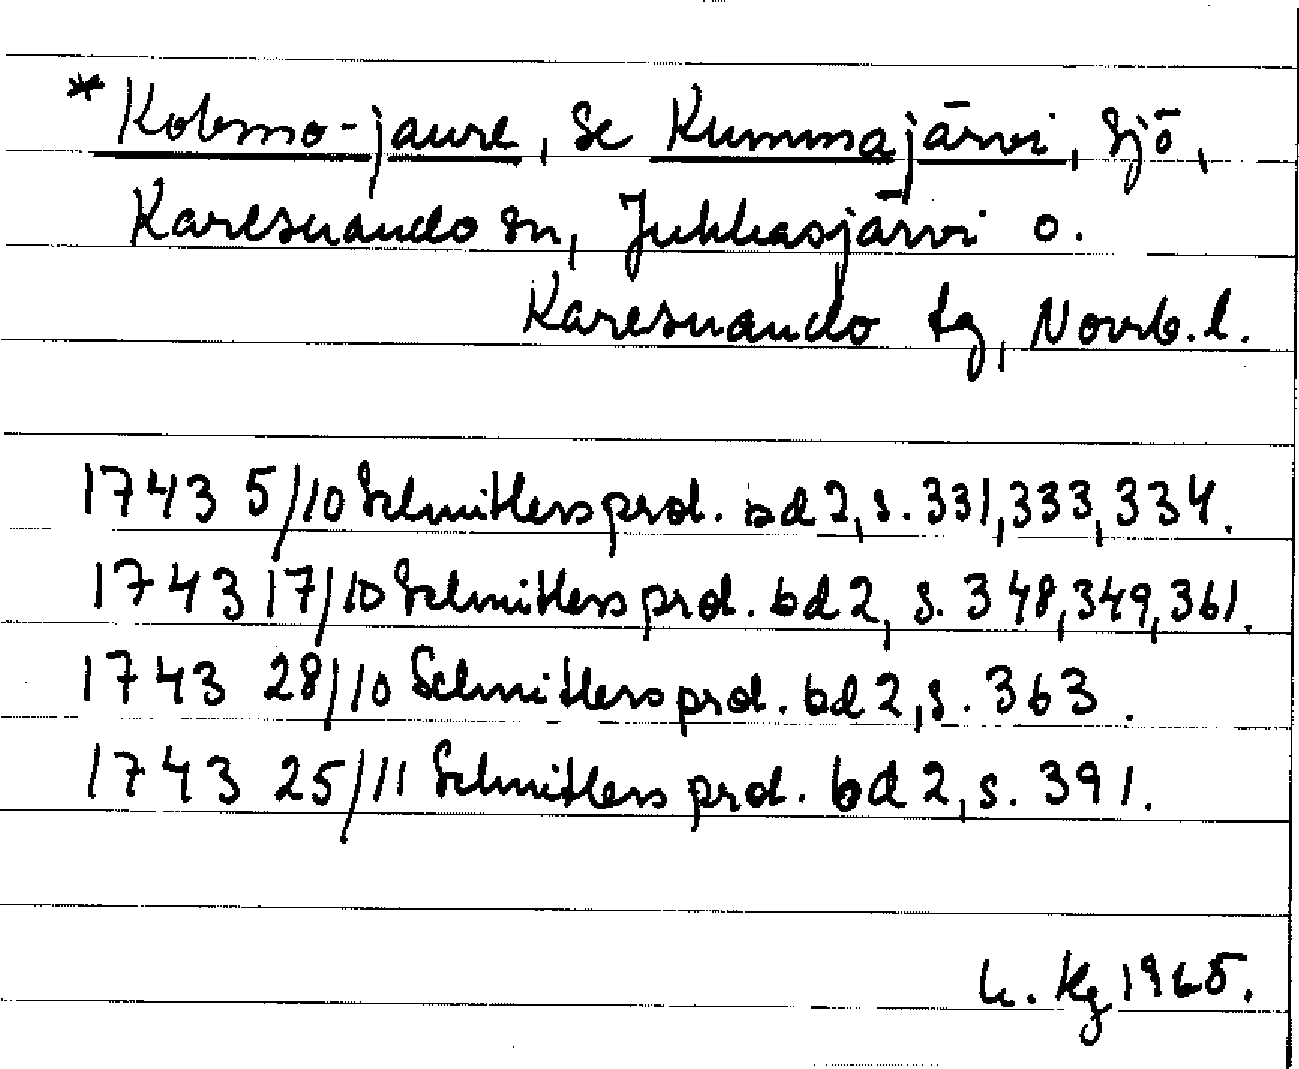 * Kobmo-jaure, se Kummajärvi, sjö,
Karesuando sn, Jukkasjärvi o.
Karesuando tg, Norrb. l.
1743 5/10 Schnitlers prot. bd 2, s. 331, 333, 334.
1743 17/10 Schnitlers prot. bd 2, s. 348, 349, 361.
1743 28/10 Schnitlers prot. bd 2, s. 363.
1743 25/11 Schnitlers prot. bd 2, s. 391.
Kg 1965.